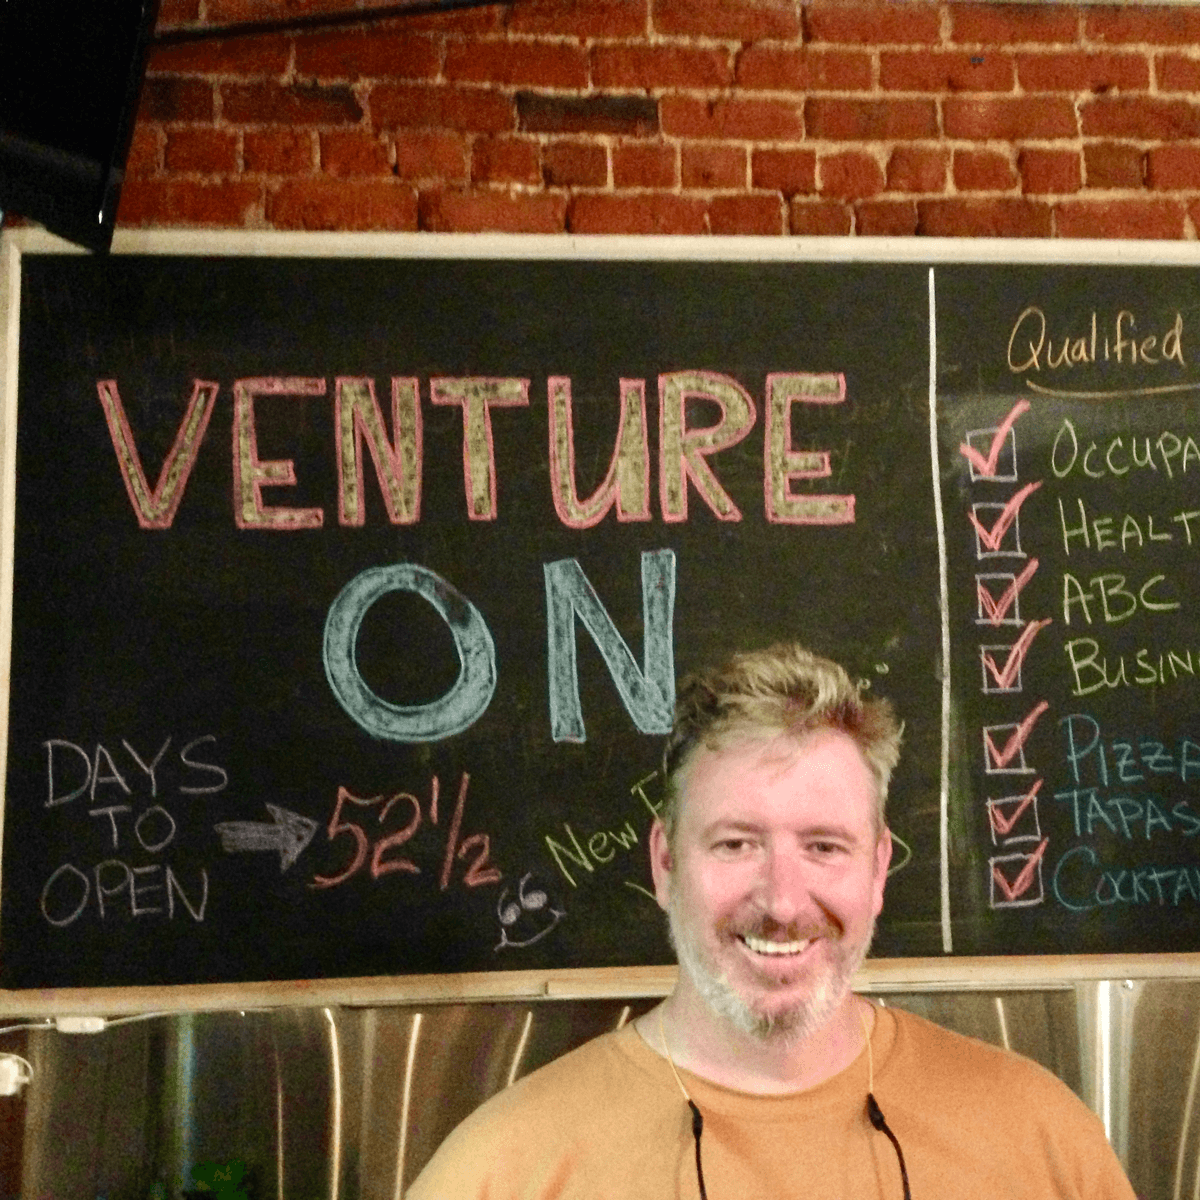 VENTURE
ON
DAYS
TO
OPEN
52 1/2
New
Qualified
OCCUPA
HEALT
ABC
BUSIN
PIZZE
TAPAS
COCKTA